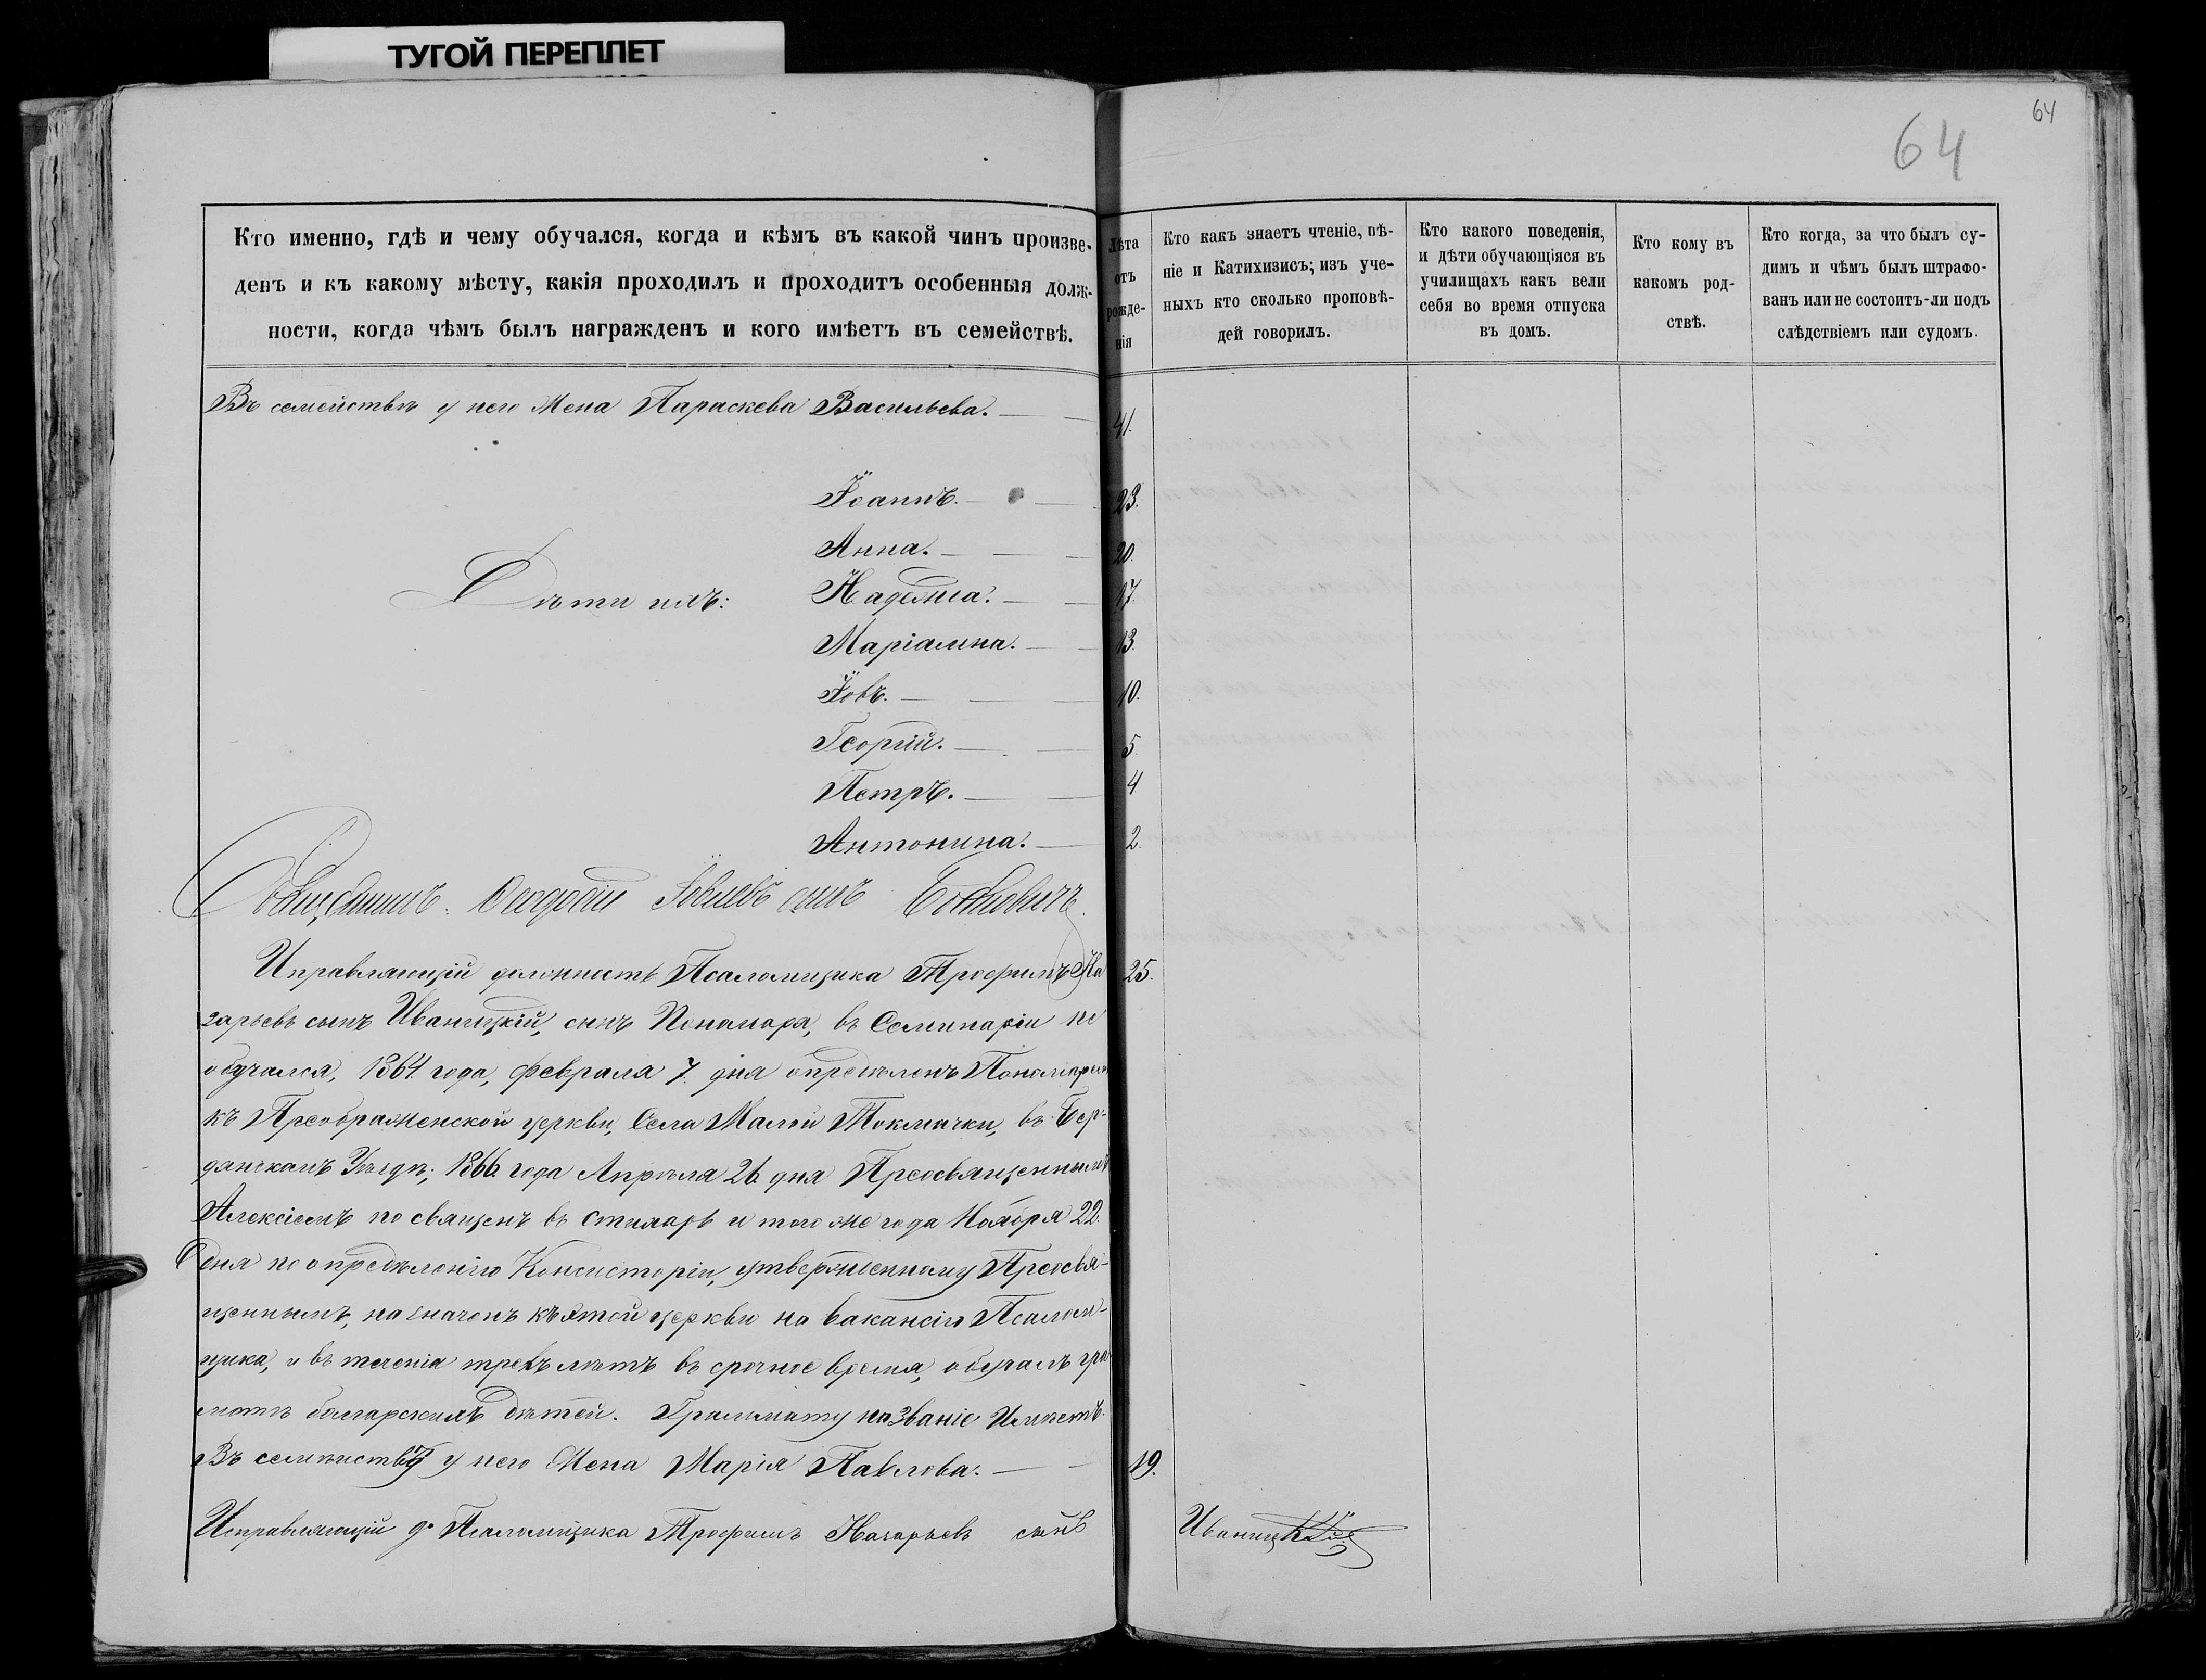 ТУГОЙ ПЕРЕПЛЕТ
64
64
Кто именно, гдѣ и чему обучался, когда и кѣмъ въ какой чинъ произве-
денъ и къ какому мѣсту, какія проходилъ и проходитъ особенныя долж-
ности, когда чѣмъ былъ награжденъ и кого имѣетъ въ семействѣ.
Лѣта
отъ
рожде-
нія
Кто какъ знаетъ чтеніе, пѣ-
ніе и Катихизисъ; изъ уче-
ныхъ кто сколько проповѣ-
дей говорилъ.
Кто какого поведенія,
и дѣти обучающіяся въ
училищахъ какъ вели
себя во время отпуска
въ домъ.
Кто кому въ
какомъ род-
ствѣ.
Кто когда, за что былъ су-
димъ и чѣмъ былъ штрафо-
ванъ или не состоитъ-ли подъ
слѣдствіемъ или судомъ.
Въ семействѣ у него Жена Параскева Васильева. 41.
Іоаннъ. 23.
Анна. 20.
Дѣти ихъ: Надежда. 17.
Маріамна. 13.
Іовъ. 10.
Георгій. 5.
Петръ. 4.
Антонина. 2.
Священникъ Ѳеодосій Іовлевъ сынъ
Исправляющій должность Псаломщика Трофимъ На 25.
зарьевъ сынъ Иваницкій, сынъ Пономаря, въ Семинаріи не
обучался, 1864 года, февраля 7. дня опредѣленъ Пономаремъ
къ Преображенской церкви, Села Малой Токмачки, въ Бер-
дянскомъ Уѣздѣ; 1866. года Апрѣля 26. дня Преосвященнымъ
Алексіемъ посвященъ въ стихарь и того же года Ноября 22.
дня по опредѣленію Консисторіи, утвержденному Преосвя-
щеннымъ, назначенъ къ этой церкви на вакансію Псалом-
щика, и въ теченіи трехъ лѣтъ въ срочное время, обучалъ гра
мотѣ болгарскихъ дѣтей. Граммату на званіе Имѣетъ.
Въ семѣйствѣ у него Жена Марія Павлова. 19.
Исправляющій д. Псаломщика Трофимъ Назарьевъ сынъ Иваницкій